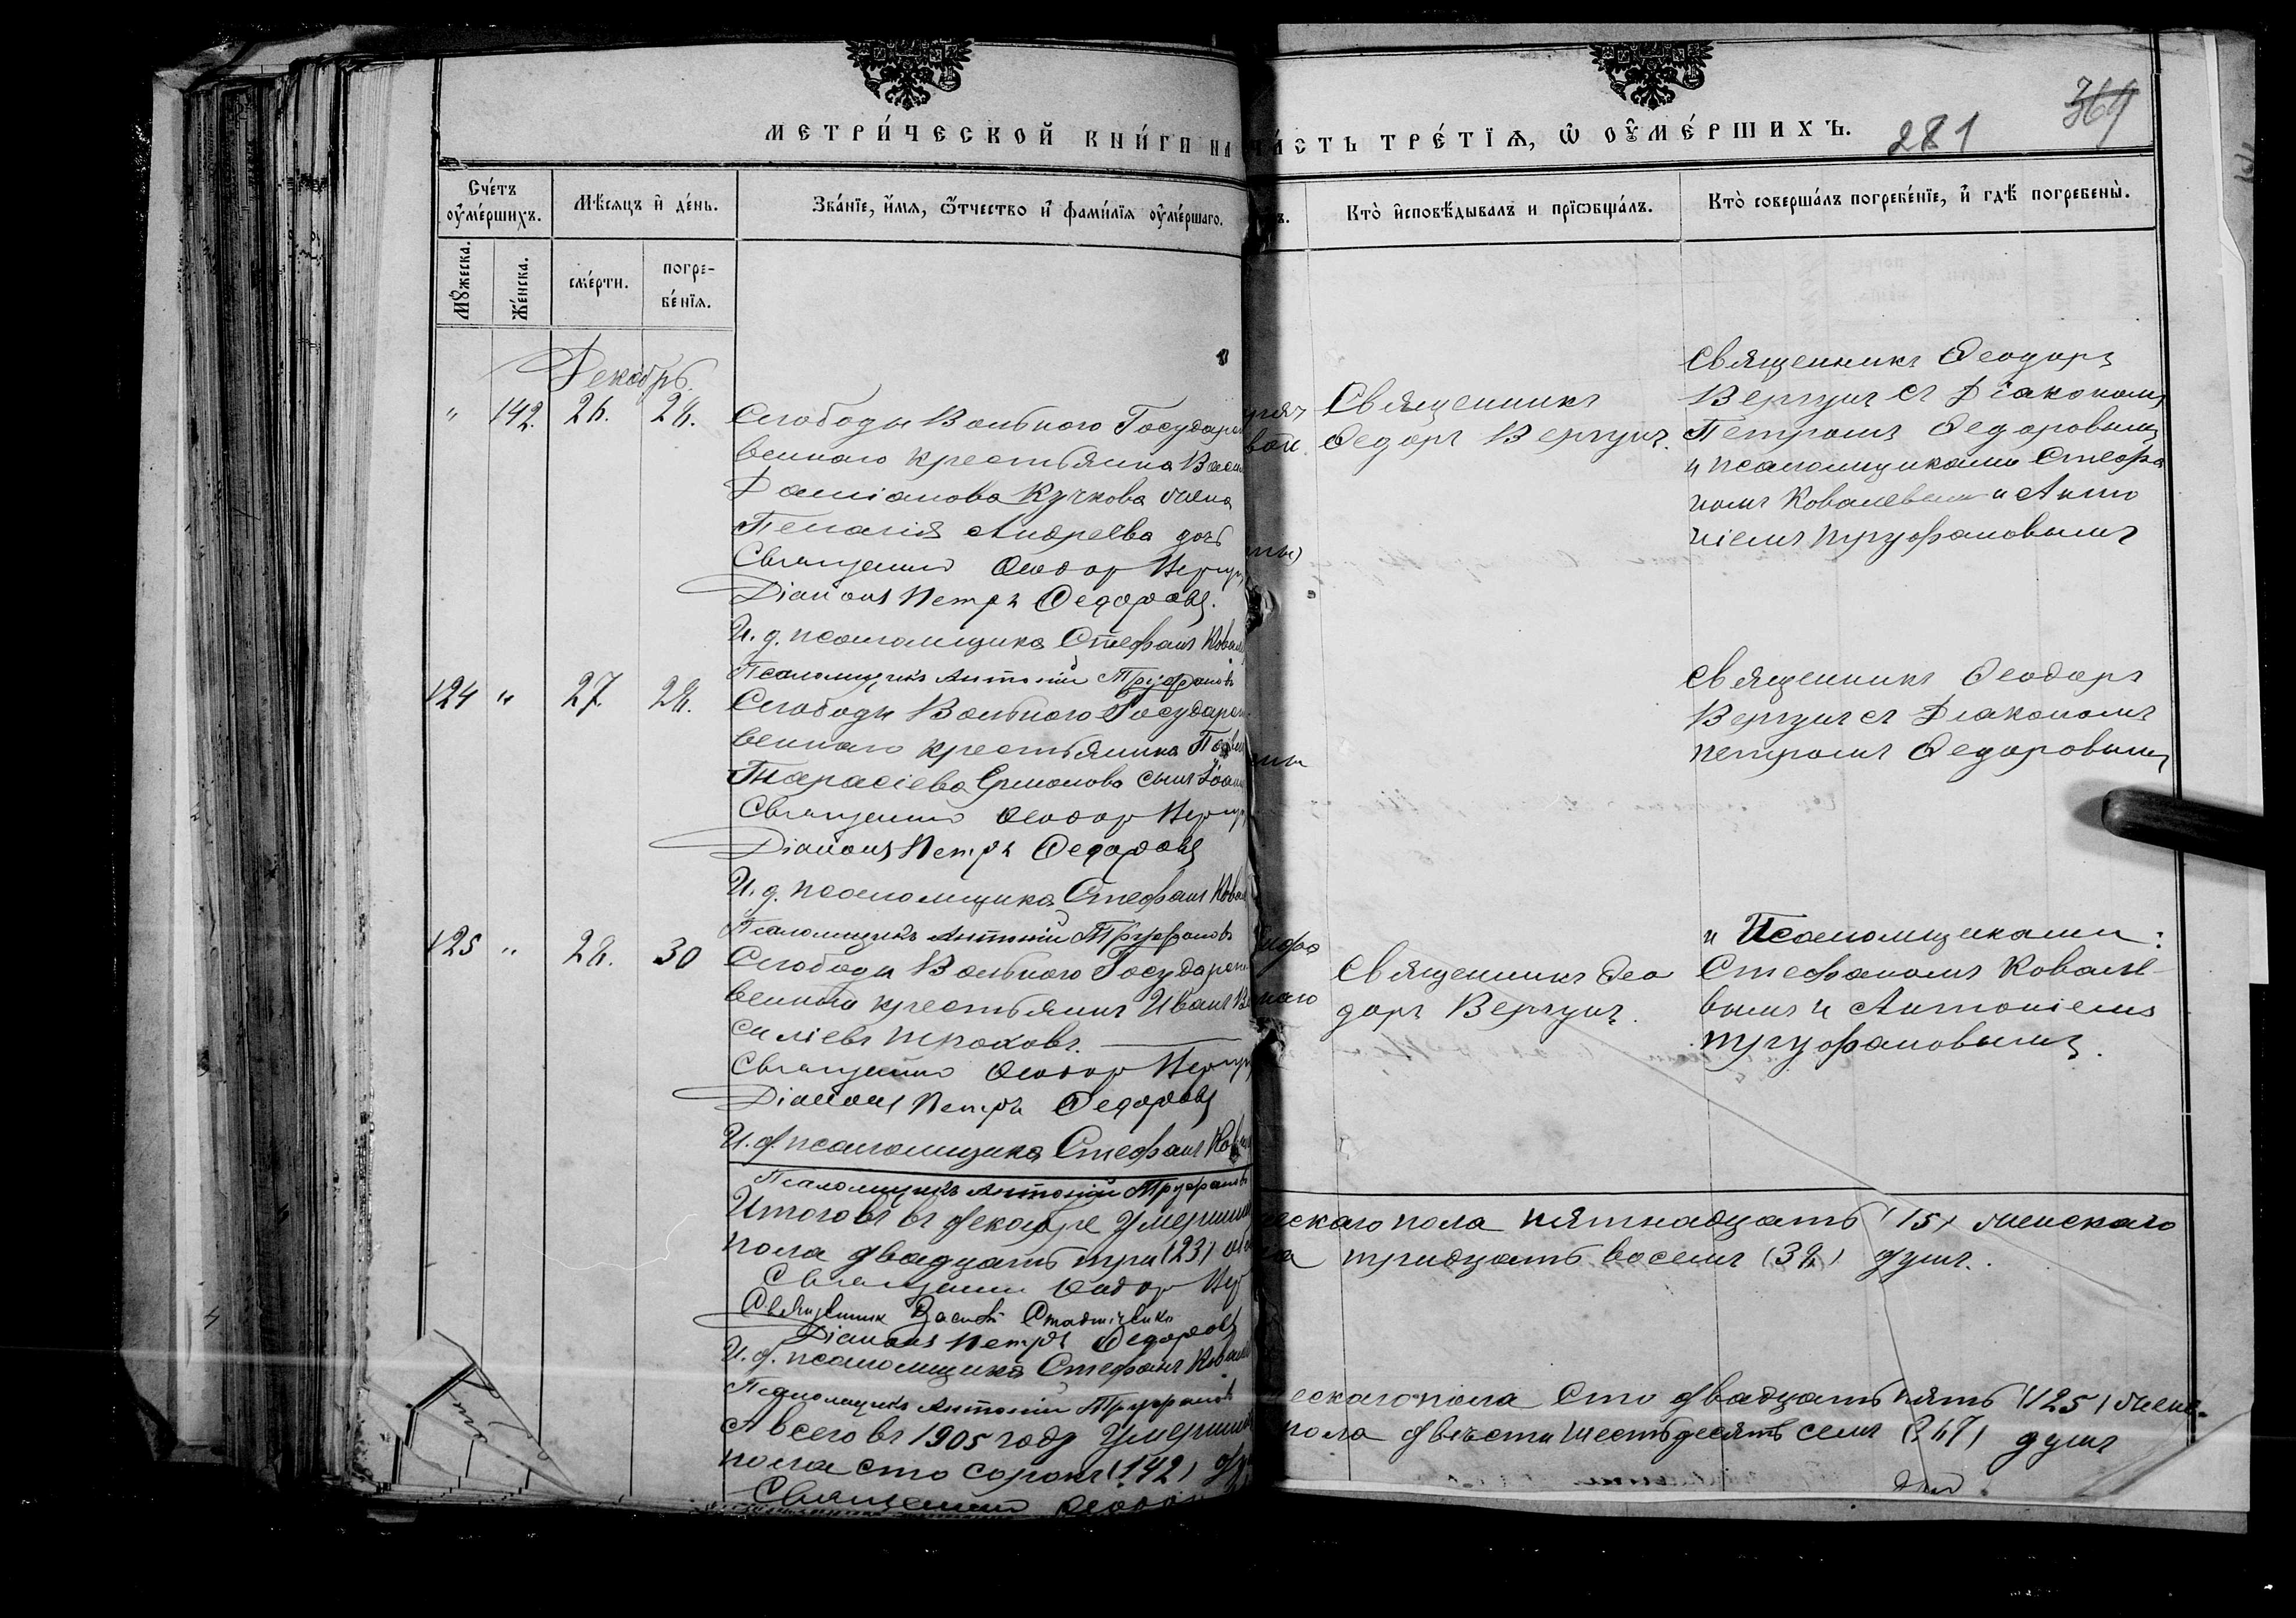 МЕТРИ́ЧЕСКОЙ КНИ́ГИ НА
ЧА́СТЬ ТРЕ́ТІѦ, Ѡ ОУ҆МЕ́РШИХЪ.
281
364
Сче́тъ оу҆ме́ршихъ.
Мѣ́сяцъ и҆ де́нь.
Зва́нїе, и҆́мя, ѻ҆́тчество и҆ фами́лїя оу҆ме́ршаго.
Кто̀ и҆сповѣ́дывалъ и прїѡбща́лъ.
Кто̀ соверша́лъ погребе́нїе, и҆ гдѣ̀ погребены̀.
Мꙋ́жеска.
Же́нска.
сме́рти.
погре-
бе́нїя.
Декабрь.
" 142. 26. 28.
Слободы Вольного Государст
веннаго крестьянина Васи
Даміанова Кучкова жена
Пелагія Андреева дочь
Священник Феодор Вергун
Діаконъ Петръ Федоровъ.
И. д. псаломщика Стефанъ Ковал
Псаломщикъ Антоній Труфановъ
Священникъ
Федоръ Вергунъ.
Священникъ Феодоръ
Вергунъ съ Діакономъ
Петромъ Федоровымъ
и псаломщиками Стефа
номъ Ковалевымъ и Анто
ніемъ Труфановымъ
124 " 27. 28.
Слободы Вольного Государст
веннаго крестьянина Павл
Тарасіева Ермонова сынъ Іоанн
Священник Феодор Вергун
Діаконъ Петръ Федоровъ
И. д. псаломщика Стефанъ Ковал
Псаломщикъ Антоній Труфановъ
Священникъ Феодоръ
Вергунъ съ Діакономъ
Петромъ Федоровымъ
125 " 28. 30
Слободы Вольного Государст
венный крестьянинъ Иванъ Ва
силіевъ Троховъ.
Священник Феодор Вергун
Діаконъ Петръ Федоровъ
И. д. псаломщика Стефанъ Ковал
Псаломщикъ Антоній Труфановъ
Священникъ Фео
доръ Вергунъ.
и Псаломщиками:
Стефаномъ Ковале-
вымъ и Антоніемъ
Труфановымъ.
Итого въ декабре умерши
ескаго пола пятнадцать (15) женскаго
пола двадцать три (23) обо
ла тридцать восемь (38) душъ.
Священник Феодор Вер
Священник Василій
Діаконъ Петръ Федоровъ
И. д. псаломщика Стефанъ Ковал
Псаломщикъ Антоній Труфановъ
А всего въ 1905 году умерши
ескаго пола сто двадцать пять (125) женс-
пола сто сорокъ (142)
пола двѣсти шестьдесятъ семь (267) душъ
Священник Феодор